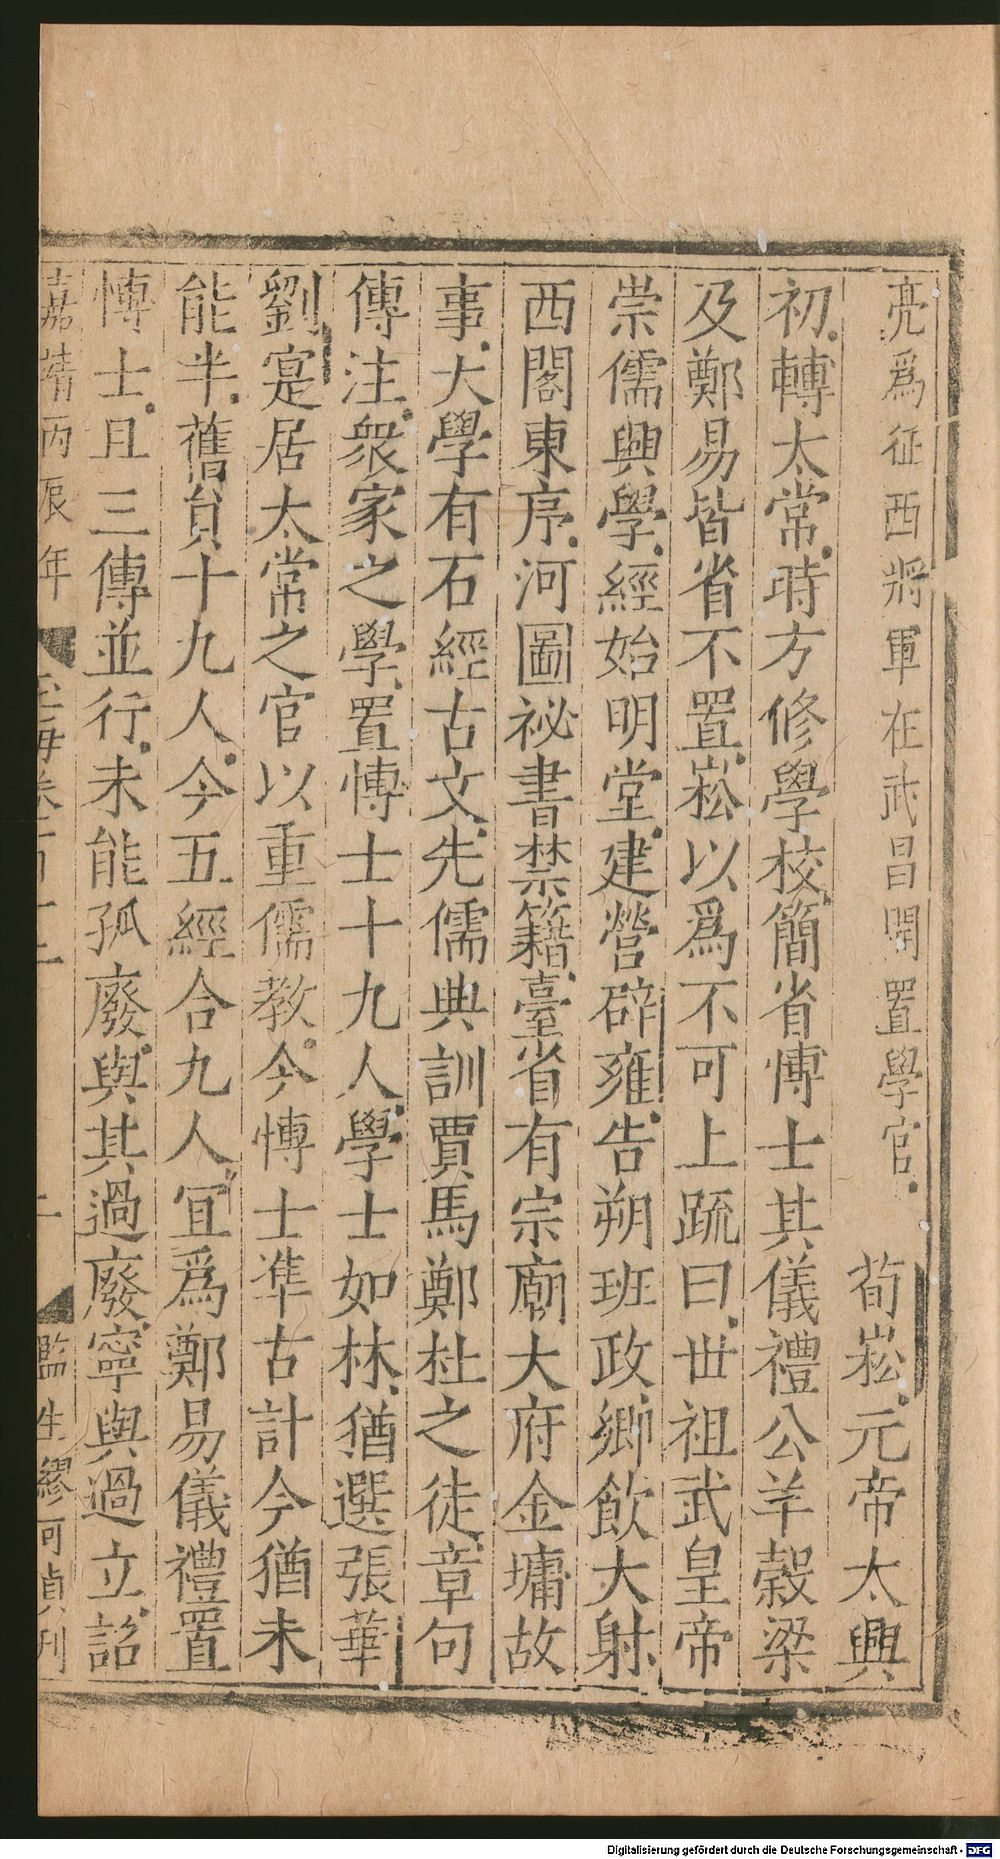 亮爲征西將軍在武昌開置學官　荀崧元帝太興
初轉太常時方修學校簡省愽士其儀禮公羊穀梁
及鄭易皆省不置崧以爲不可上疏曰世祖武皇帝
崇儒興學經始明堂建營辟雍告朔班政鄉飲大射
西閣東序河圖祕書禁籍臺省有宗廟大府金墉故
事大學有石經古文先儒典訓賈馬鄭杜之徒章句
傳注衆家之學置愽士十九人學士如林猶選張華
劉寔居太常之官以重儒教今愽士準古計今猶未
能半舊貟十九人今五經合九人宜爲鄭易儀禮置
愽士且三傳並行未能孤廢與其過廢寧與過立詔
嘉靖丙辰年　玉海卷百十二　二　監生繆可貞刊
Digitalisierung gefördert durch die Deutsche Forschungsgemeinschaft - DFG